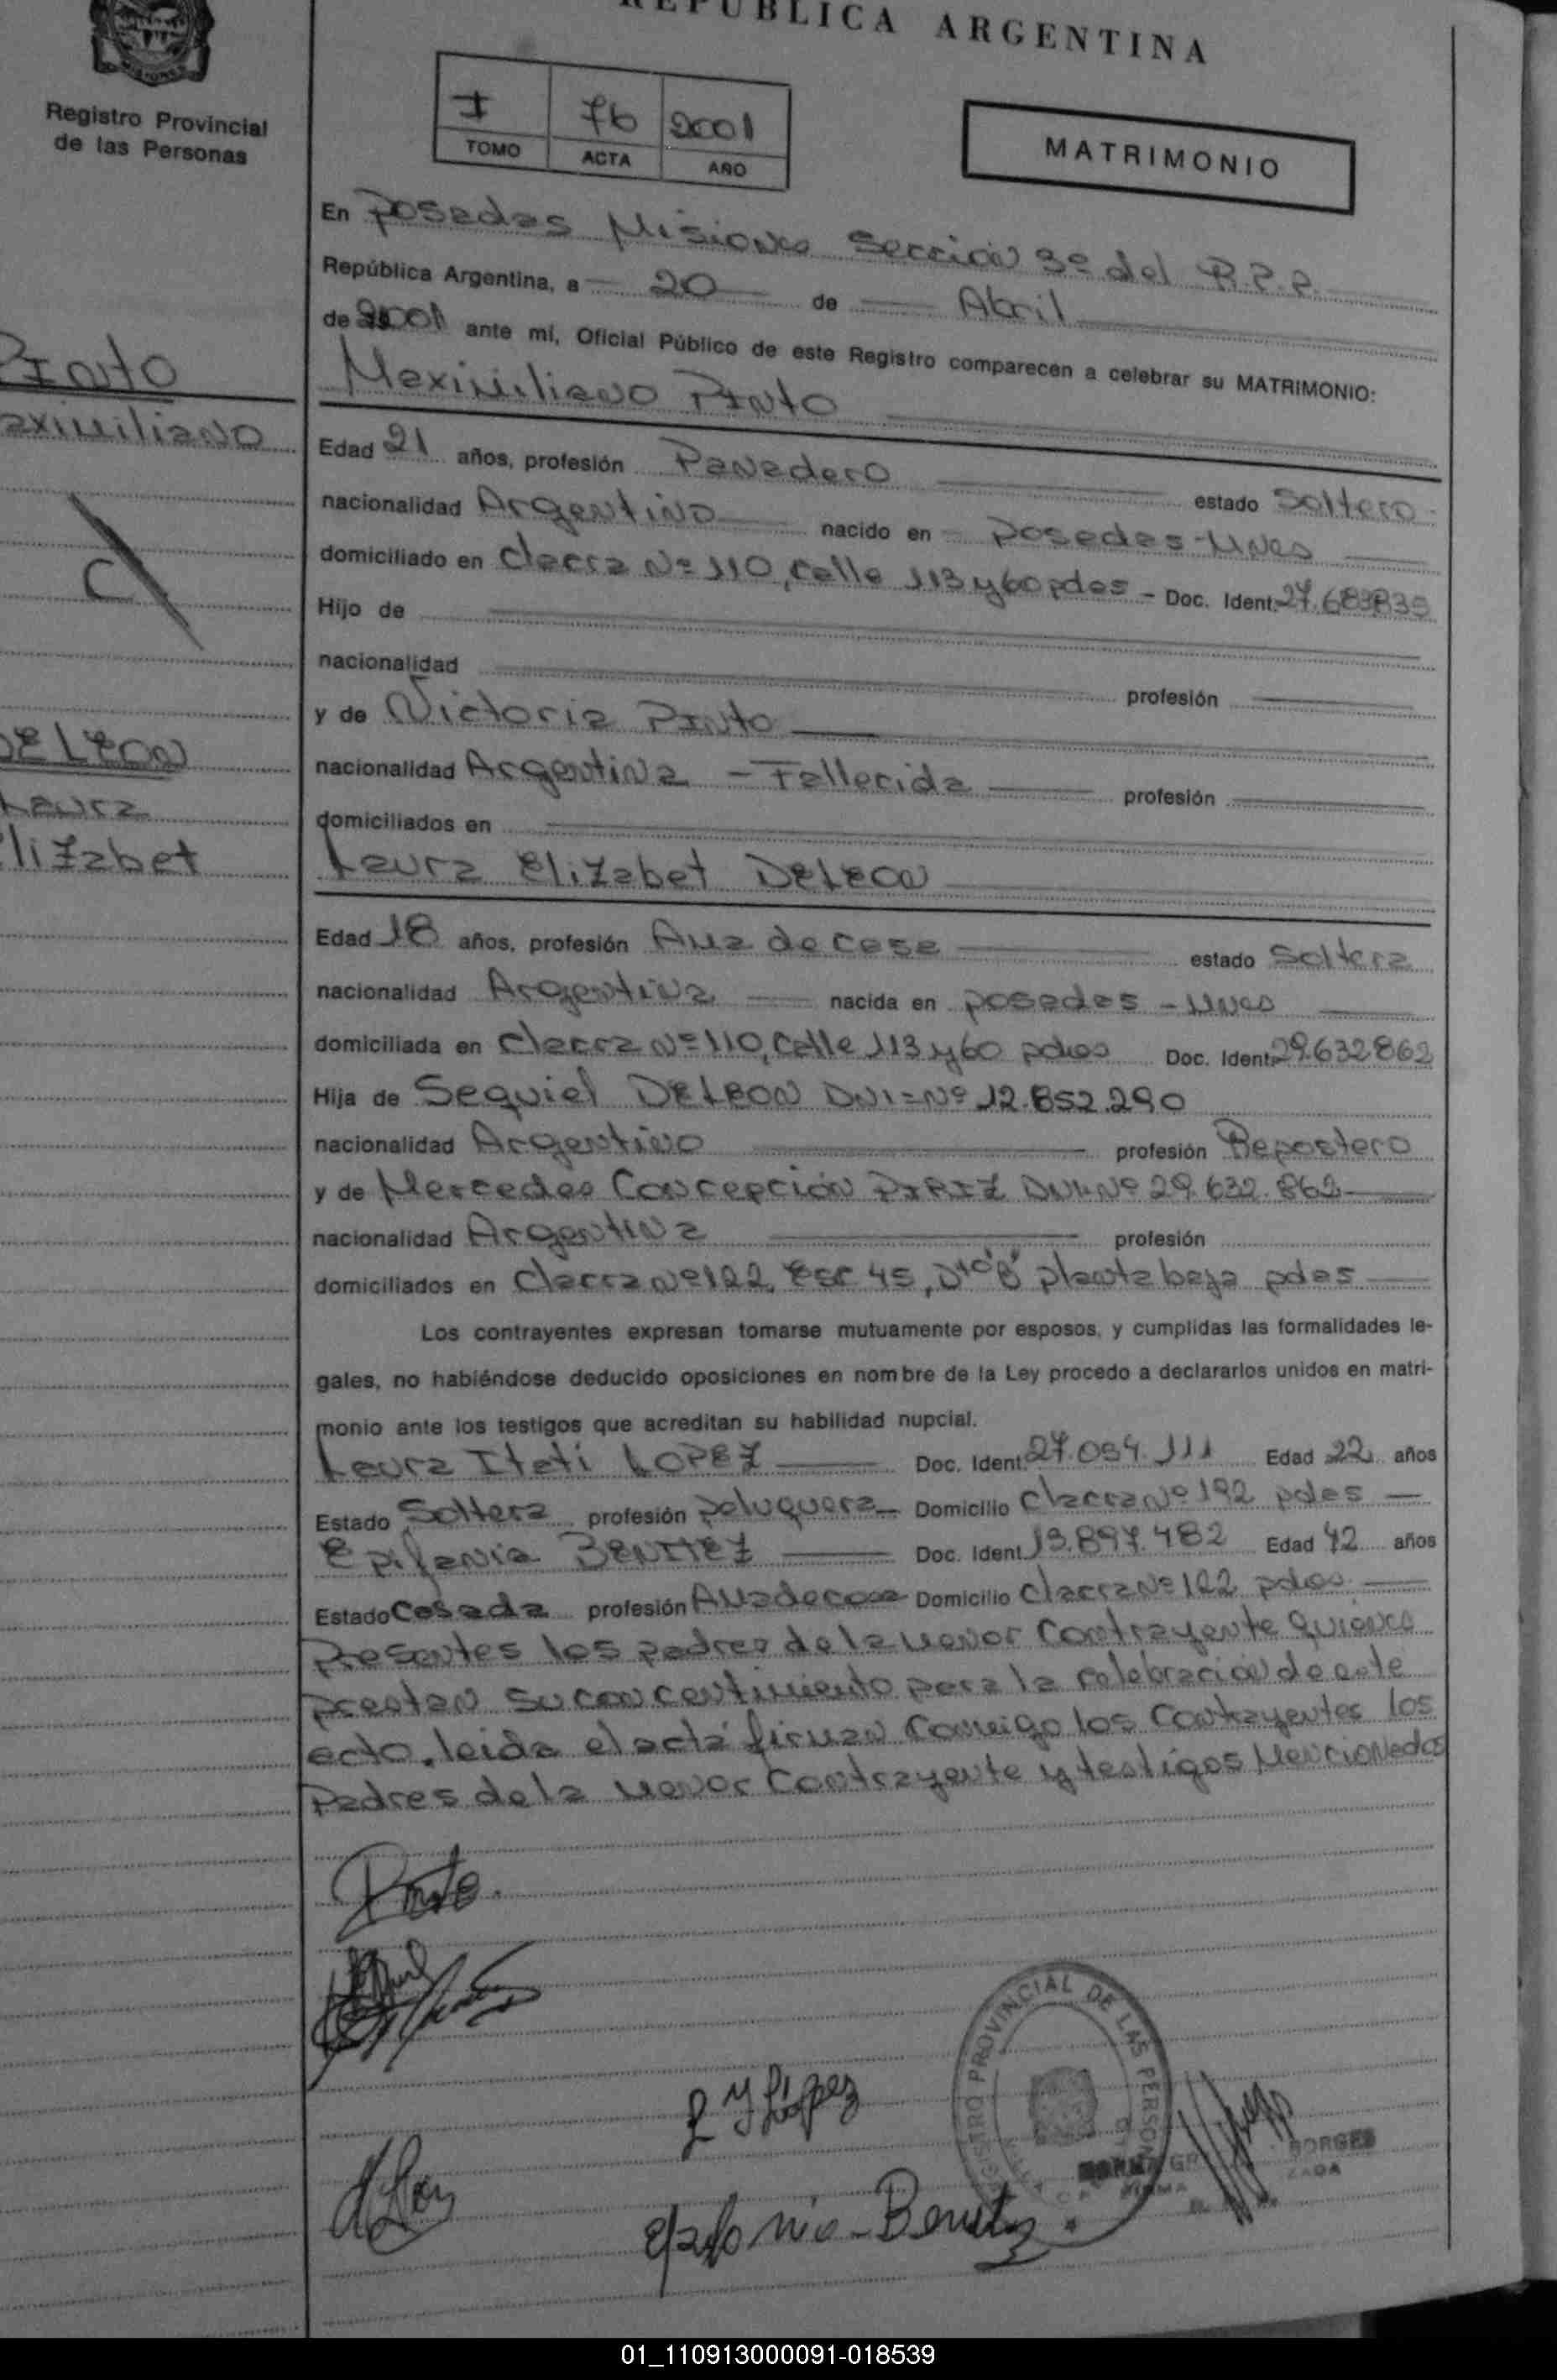 REPUBLICA ARGENTINA
MISIONES
Registro Provincial
de las Personas
I 76 2001
TOMO ACTA AÑO
MATRIMONIO
En Posadas Misiones Sección 3º del R.P.P.
República Argentina, a 20 de Abril
de 2001 ante mí, Oficial Público de este Registro comparecen a celebrar su MATRIMONIO:
Maximiliano PINTO
Edad 21 años, profesión Panadero estado Soltero
nacionalidad Argentino nacido en Posadas - Mnes
domiciliado en Chacra Nº 110, Calle 113 y 60 pdas - Doc. Ident. 27.683835
Hijo de
nacionalidad profesión
y de Victoria PINTO
nacionalidad Argentina - Fallecida profesión
domiciliados en
Laura Elizabet DE LEON
Edad 18 años, profesión Ama de casa estado Soltera
nacionalidad Argentina nacida en posadas - Mnes
domiciliada en Chacra Nº 110, Calle 113 y 60 pdas Doc. Ident. 29.632.862
Hija de Sequiel DE LEON DNI=Nº 12.852.290
nacionalidad Argentino profesión Repostero
y de Mercedes Concepción PIRIZ DNI=Nº 29.632.862
nacionalidad Argentina profesión
domiciliados en Chacra Nº 122, Esc 45, Dto "B" planta baja pdas
Los contrayentes expresan tomarse mutuamente por esposos, y cumplidas las formalidades le-
gales, no habiéndose deducido oposiciones en nombre de la Ley procedo a declararlos unidos en matri-
monio ante los testigos que acreditan su habilidad nupcial.
Laura Itati LOPEZ Doc. Ident. 27.094.111 Edad 22 años
Estado Soltera profesión peluquera Domicilio Chacra Nº 192 pdas
Epifania BENITEZ Doc. Ident. 13.897.482 Edad 42 años
Estado Casada profesión Ama de casa Domicilio Chacra Nº 122 pdas
Presentes los padres de la menor Contrayente quiénes
prestan su concentimiento para la celebración de este
acto. leida el acta firman Conmigo los Contrayentes los
Padres de la menor Contrayente y testigos Mencionados
PINTO
aximiliano
C
DE LEON
Laura
Elizabet
Pinto
L Y López
Epifania - Benitez
REGISTRO PROVINCIAL DE LAS PERSONAS
BORGES
01_110913000091-018539